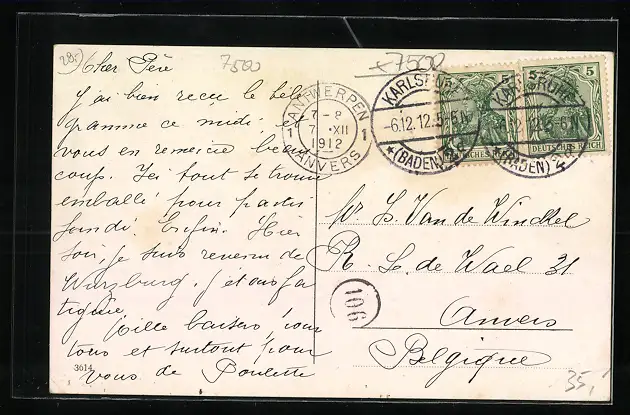 28.-
7500
+7500
Cher Père
J'ai bien reçu le télé
gramme ce midi et
vous en remercie beau
coup. Ici tout se trouve
emballé pour partir
lundi. Enfin. Hier
soir, je suis revenu de
Wurzburg, j'étais fa
tiguée,
Mille baisers, pour
tous et surtout pour
vous de Paulette
3614
ANTWERPEN
1 7-8 1
7 XII
1912
ANVERS
KARLSRUHE
-6.12.12.5-6N
*(BADEN)
5
DEUTSCHES REICH
KARLSRUHE
*(BADEN)
5
DEUTSCHES REICH
Van de Winckel
R. L. de Wael 31
Anvers
Belgique
106
35,-